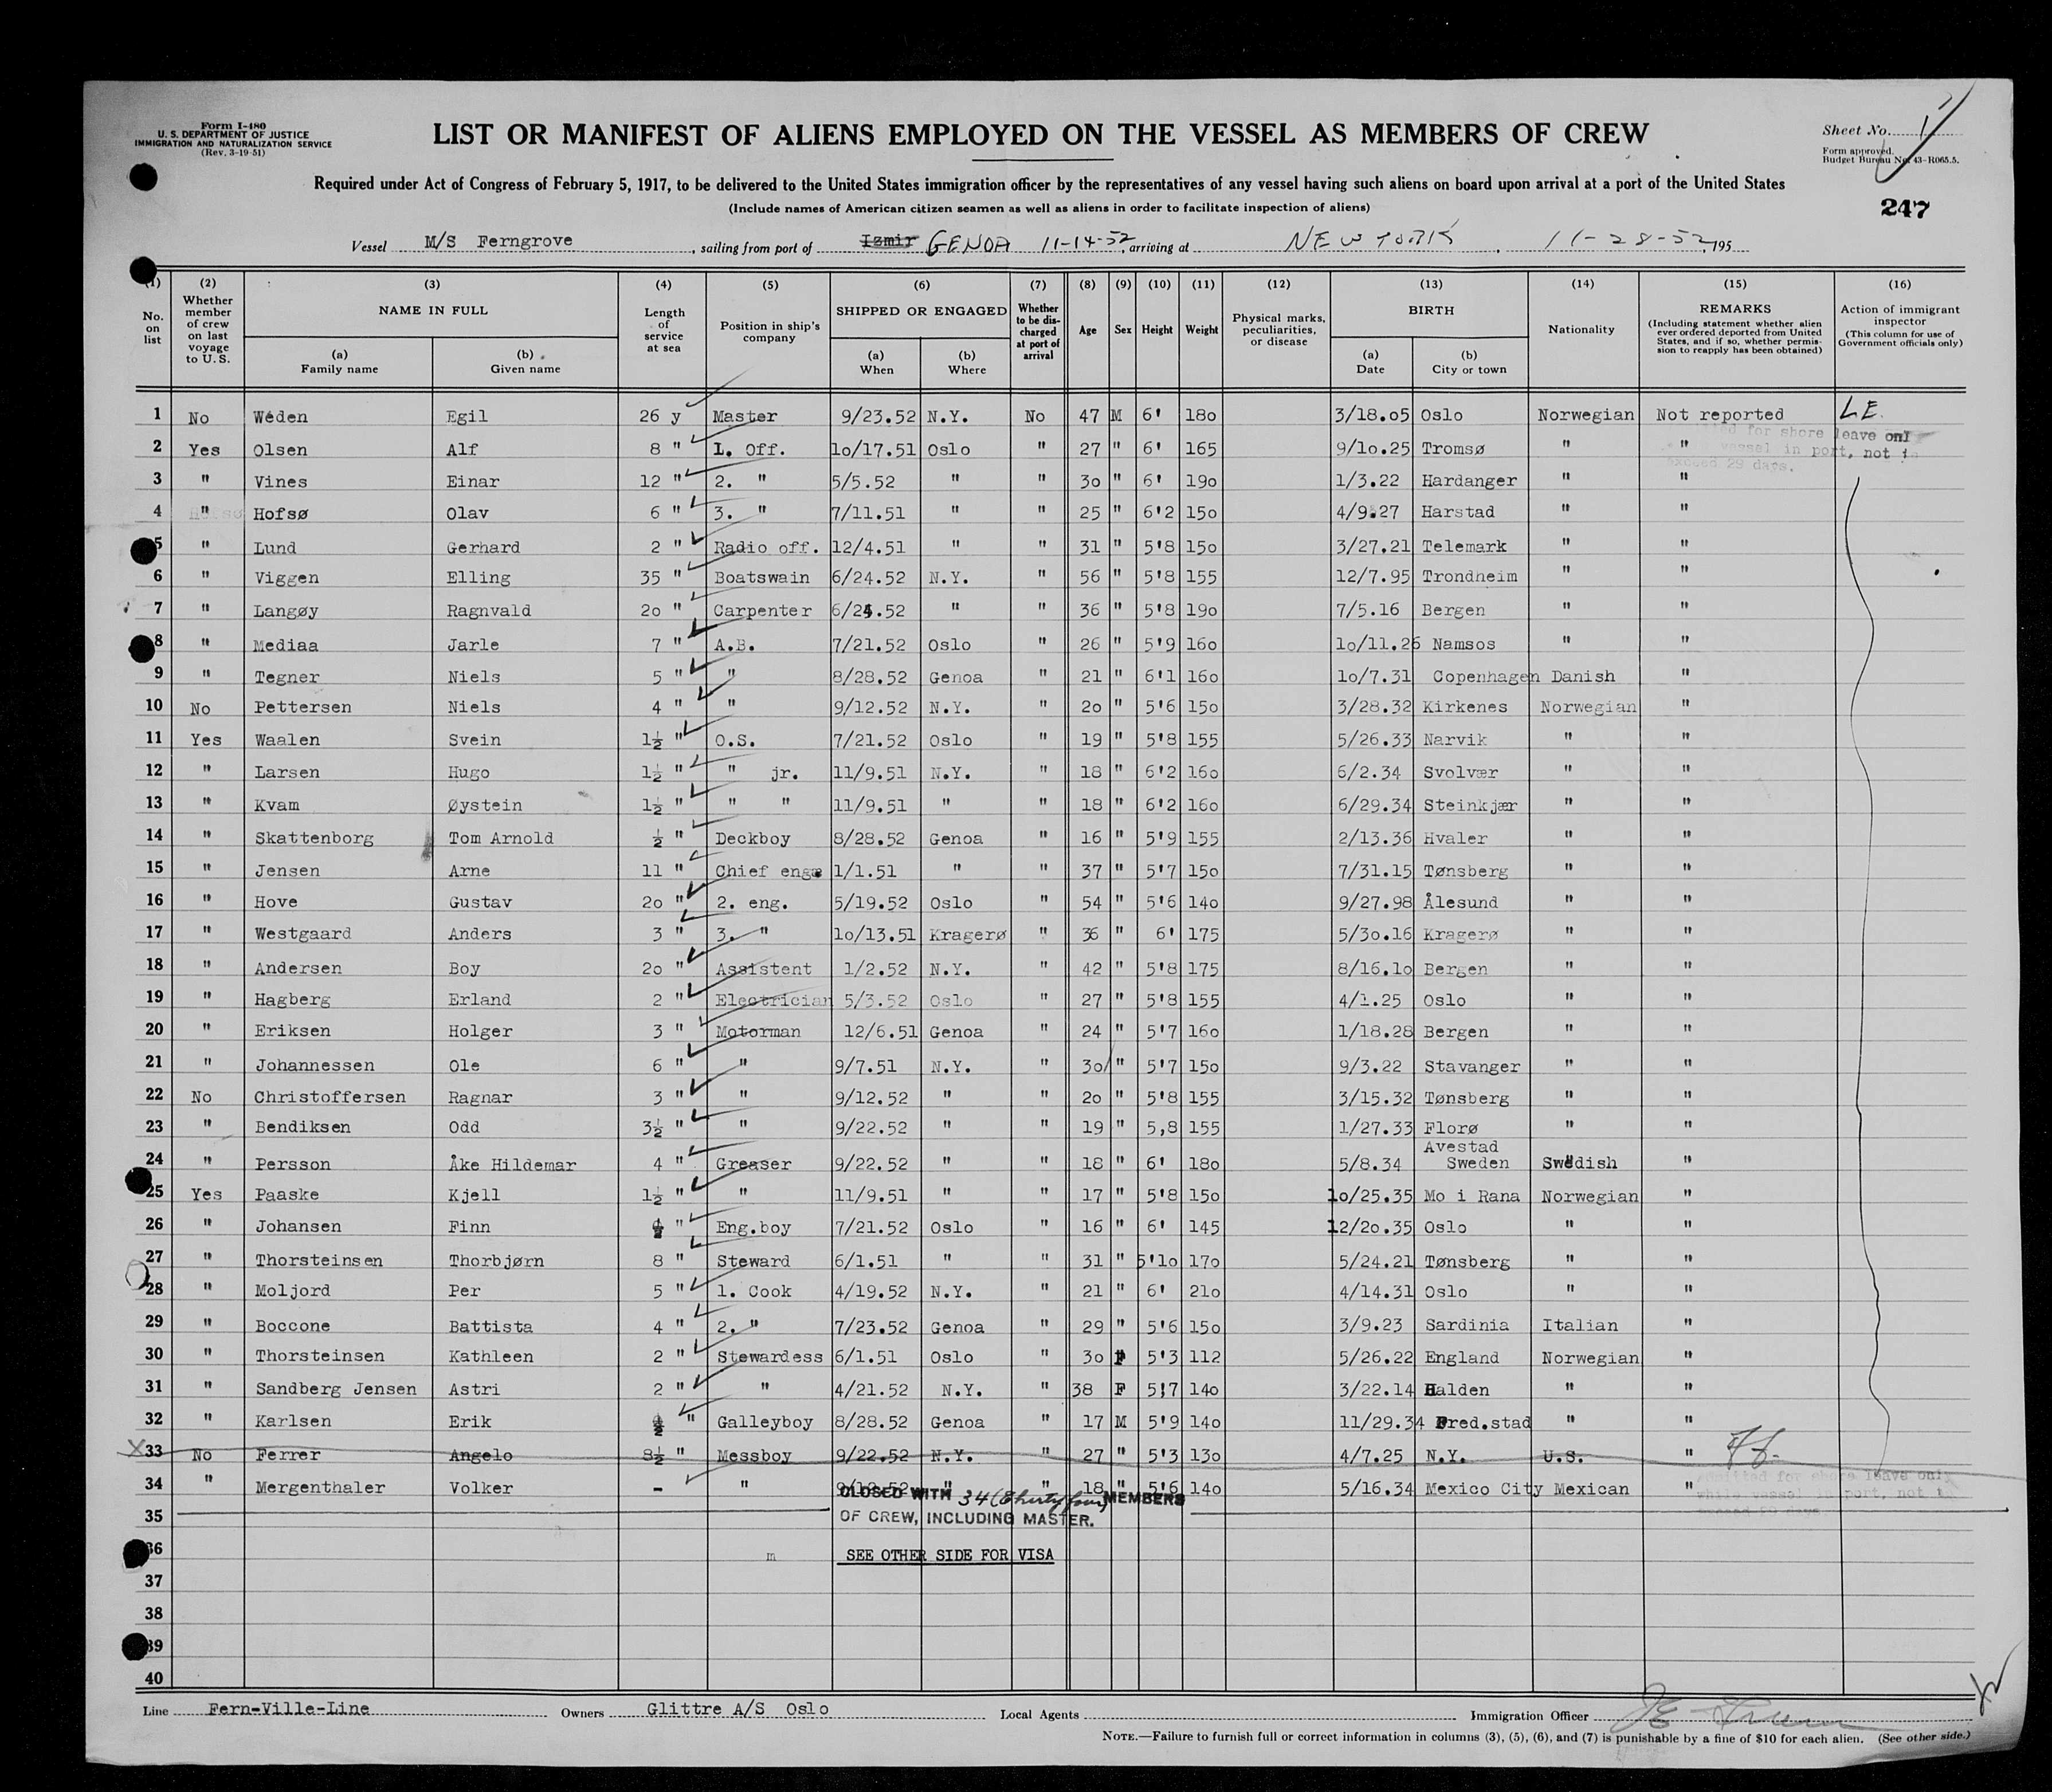 Form I-480
U. S. DEPARTMENT OF JUSTICE
IMMIGRATION AND NATURALIZATION SERVICE
(Rev. 3-19-51)
LIST OR MANIFEST OF ALIENS EMPLOYED ON THE VESSEL AS MEMBERS OF CREW
Sheet No. 1
Form approved.
Budget Bureau No. 43-R065.5.
Required under Act of Congress of February 5, 1917, to be delivered to the United States immigration officer by the representatives of any vessel having such aliens on board upon arrival at a port of the United States
(Include names of American citizen seamen as well as aliens in order to facilitate inspection of aliens)
247
Vessel M/S Ferngrove, sailing from port of Izmir GENOA 11-14-52, arriving at NEW YORK, 11-28-52, 195
(1) (2) (3) (4) (5) (6) (7) (8) (9) (10) (11) (12) (13) (14) (15) (16)
No. on list Whether member of crew on last voyage to U.S. NAME IN FULL Length of service at sea Position in ship's company SHIPPED OR ENGAGED Whether to be discharged at port of arrival Age Sex Height Weight Physical marks, peculiarities, or disease BIRTH Nationality REMARKS (Including statement whether alien ever ordered deported from United States, and if so, whether permission to reapply has been obtained) Action of immigrant inspector (This column for use of Government officials only)
(a) Family name (b) Given name (a) When (b) Where (a) Date (b) City or town
1 No Weden Egil 26 y Master 9/23.52 N.Y. No 47 M 6' 180 3/18.05 Oslo Norwegian Not reported L.E.
for shore leave only
vessel in port, not to
exceed 29 days.
2 Yes Olsen Alf 8 " 1. Off. 10/17.51 Oslo " 27 " 6' 165 9/10.25 Tromsø " "
3 " Vines Einar 12 " 2. " 5/5.52 " " 30 " 6' 190 1/3.22 Hardanger " "
4 " Hofsø Olav 6 " 3. " 7/11.51 " " 25 " 6'2 150 4/9.27 Harstad " "
5 " Lund Gerhard 2 " Radio off. 12/4.51 " " 31 " 5'8 150 3/27.21 Telemark " "
6 " Viggen Elling 35 " Boatswain 6/24.52 N.Y. " 56 " 5'8 155 12/7.95 Trondheim " "
7 " Langøy Ragnvald 20 " Carpenter 6/24.52 " " 36 " 5'8 190 7/5.16 Bergen " "
8 " Mediaa Jarle 7 " A.B. 7/21.52 Oslo " 26 " 5'9 160 10/11.26 Namsos " "
9 " Tegner Niels 5 " " 8/28.52 Genoa " 21 " 6'1 160 10/7.31 Copenhagen Danish "
10 No Pettersen Niels 4 " " 9/12.52 N.Y. " 20 " 5'6 150 3/28.32 Kirkenes Norwegian "
11 Yes Waalen Svein 1½ " O.S. 7/21.52 Oslo " 19 " 5'8 155 5/26.33 Narvik " "
12 " Larsen Hugo 1½ " " jr. 11/9.51 N.Y. " 18 " 6'2 160 6/2.34 Svolvær " "
13 " Kvam Øystein 1½ " " " 11/9.51 " " 18 " 6'2 160 6/29.34 Steinkjær " "
14 " Skattenborg Tom Arnold ½ " Deckboy 8/28.52 Genoa " 16 " 5'9 155 2/13.36 Hvaler " "
15 " Jensen Arne 11 " Chief eng. 1/1.51 " " 37 " 5'7 150 7/31.15 Tønsberg " "
16 " Hove Gustav 20 " 2. eng. 5/19.52 Oslo " 54 " 5'6 140 9/27.98 Ålesund " "
17 " Westgaard Anders 3 " 3. " 10/13.51 Kragerø " 36 " 6' 175 5/30.16 Kragerø " "
18 " Andersen Boy 20 " Assistent 1/2.52 N.Y. " 42 " 5'8 175 8/16.10 Bergen " "
19 " Hagberg Erland 2 " Electrician 5/3.52 Oslo " 27 " 5'8 155 4/1.25 Oslo " "
20 " Eriksen Holger 3 " Motorman 12/6.51 Genoa " 24 " 5'7 160 1/18.28 Bergen " "
21 " Johannessen Ole 6 " " 9/7.51 N.Y. " 30 " 5'7 150 9/3.22 Stavanger " "
22 No Christoffersen Ragnar 3 " " 9/12.52 " " 20 " 5'8 155 3/15.32 Tønsberg " "
23 " Bendiksen Odd 3½ " " 9/22.52 " " 19 " 5,8 155 1/27.33 Florø " "
24 " Persson Åke Hildemar 4 " Greaser 9/22.52 " " 18 " 6' 180 5/8.34 Avestad Sweden Swedish "
25 Yes Paaske Kjell 1½ " " 11/9.51 " " 17 " 5'8 150 10/25.35 Mo i Rana Norwegian "
26 " Johansen Finn ½ " Eng.boy 7/21.52 Oslo " 16 " 6' 145 12/20.35 Oslo " "
27 " Thorsteinsen Thorbjørn 8 " Steward 6/1.51 " " 31 " 5'10 170 5/24.21 Tønsberg " "
28 " Moljord Per 5 " 1. Cook 4/19.52 N.Y. " 21 " 6' 210 4/14.31 Oslo " "
29 " Boccone Battista 4 " 2. " 7/23.52 Genoa " 29 " 5'6 150 3/9.23 Sardinia Italian "
30 " Thorsteinsen Kathleen 2 " Stewardess 6/1.51 Oslo " 30 F 5'3 112 5/26.22 England Norwegian "
31 " Sandberg Jensen Astri 2 " " 4/21.52 N.Y. " 38 F 5'7 140 3/22.14 Halden " "
32 " Karlsen Erik ½ " Galleyboy 8/28.52 Genoa " 17 M 5'9 140 11/29.34 Fred.stad " "
X 33 No Ferrer Angelo 8½ " Messboy 9/22.52 N.Y. " 27 " 5'3 130 4/7.25 N.Y. U.S. "
34 " Mergenthaler Volker - " " " 18 " 5'6 140 5/16.34 Mexico City Mexican "
Admitted for shore leave only
while vessel in port, not to
CLOSED WITH 34 (Thirty four) MEMBERS
35 OF CREW, INCLUDING MASTER.
36 m SEE OTHER SIDE FOR VISA
37
38
39
40
Line Fern-Ville-Line Owners Glittre A/S Oslo Local Agents Immigration Officer
NOTE.—Failure to furnish full or correct information in columns (3), (5), (6), and (7) is punishable by a fine of $10 for each alien. (See other side.)